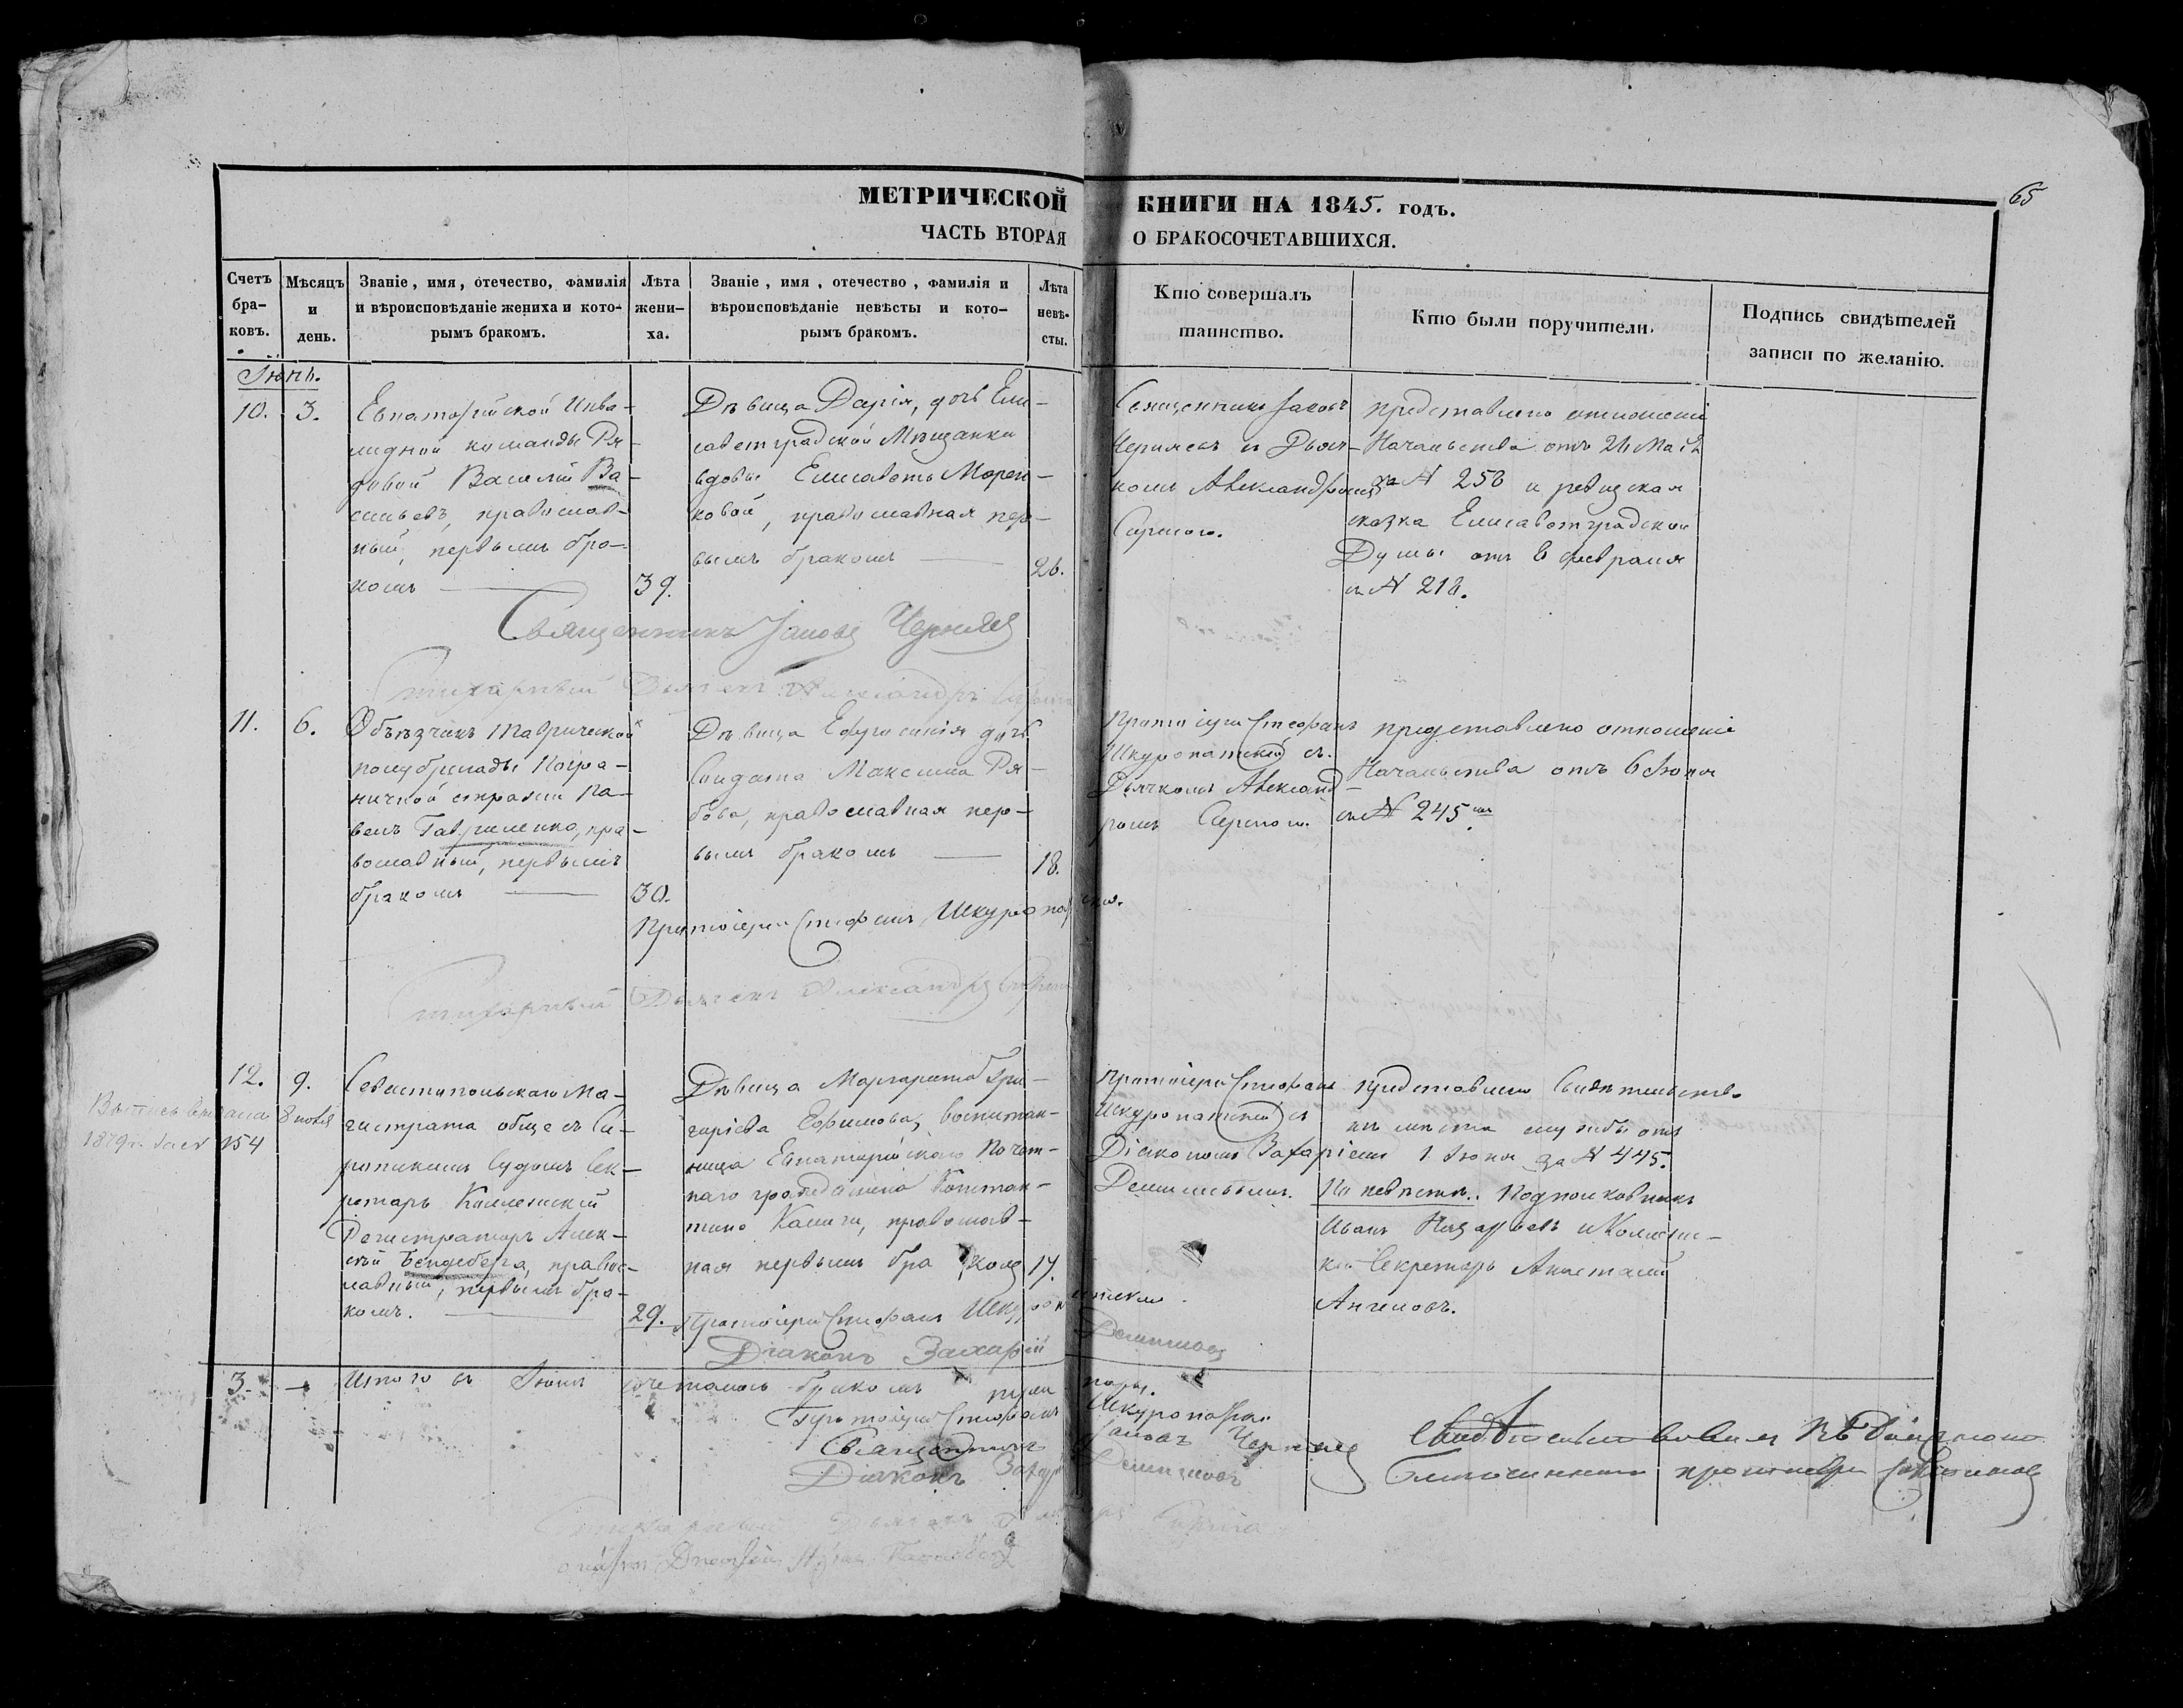 65
МЕТРИЧЕСКОЙ КНИГИ НА 1845. годъ.
ЧАСТЬ ВТОРАЯ О БРАКОСОЧЕТАВШИХСЯ.
Счетъ браковъ.
Мѣсяцъ и день.
Званіе, имя, отечество, фамилія
и вѣроисповѣданіе жениха и кото-
рымъ бракомъ.
Лѣта жени-
ха.
Званіе, имя, отечество, фамилія и
вѣроисповѣданіе невѣсты и кото-
рымъ бракомъ.
Лѣта невѣ-
сты.
Кто совершалъ
таинство.
Кто были поручители.
Подпись свидѣтелей
записи по желанію.
Іюнь.
10. 3.
Евпаторійской Инва-
лидной команды Ря-
довой Василій Ва-
сильевъ, православ-
ный, первымъ бра-
комъ
39.
Дѣвица Дарія, дочь Ели-
саветградской Мѣщанки
вдовы Елисаветы Морен-
ковой, православная пер-
вымъ бракомъ
26.
Священникъ Іаковъ
Чернявъ и Дьяч-
комъ Александромъ
представлено отношеніе
Начальства отъ 26 Мая
за N 258 и ревизская
сказка Елисаветградской
Думы отъ 6 февраля
за N 218.
Священникъ Іаковъ Чернявъ
Стихарный Дьячекъ Александръ
11. 6.
Объѣзчикъ Таврической
полубригады Погра-
ничной стражи Па-
велъ Гавриленко, пра-
вославный, первымъ
бракомъ
30.
Дѣвица Ефросинія дочь
Солдата Максима Ря-
бова, православная пер-
вымъ бракомъ
18.
Протоіерей Стефанъ
Шкуропатскій съ
Дьячкомъ Александ-
ромъ
представлено отношеніе
Начальства отъ 6 Іюня
за N 245
Протоіерей Стефанъ Шкуропатскій.
Стихарный Дьячекъ Александръ
12. 9.
Выпись выдана 8 ноября
1879 г. за N 154
Севастопольскаго Ма-
гистрата обще съ Си-
ротскимъ Судомъ Сек-
ретарь Коллежскій
Регистраторъ Алек-
сѣй Бендеберя, право-
славный, первымъ бра-
комъ.
29.
Дѣвица Маргарита Гри-
горіева Ефимова, воспитан-
ница Евпаторійскаго Почет-
наго гражданина Констан-
тина Камаги, православ-
ная первымъ бракомъ
17.
Протоіерей Стефанъ
Шкуропатскій съ
Діакономъ Захаріемъ
представлено Свидѣтельство
изъ мѣста службы отъ
1. Іюня за N 445.
По невѣстѣ: Подполковникъ
Иванъ Назарьевъ и Коллежс-
кій Секретарь Анастасій
Ангеловъ.
Протоіерей Стефанъ Шкуропатскій.
Діаконъ Захарій
3. Итого въ Іюнѣ сочеталось бракомъ три пары.
Протоіерей Стефанъ Шкуропатскій
Священникъ Іаковъ Чернявъ
Діаконъ Захарій
Стихарный Дьячекъ Александръ
Свидѣтельствовалъ
Благочинный протоіерей